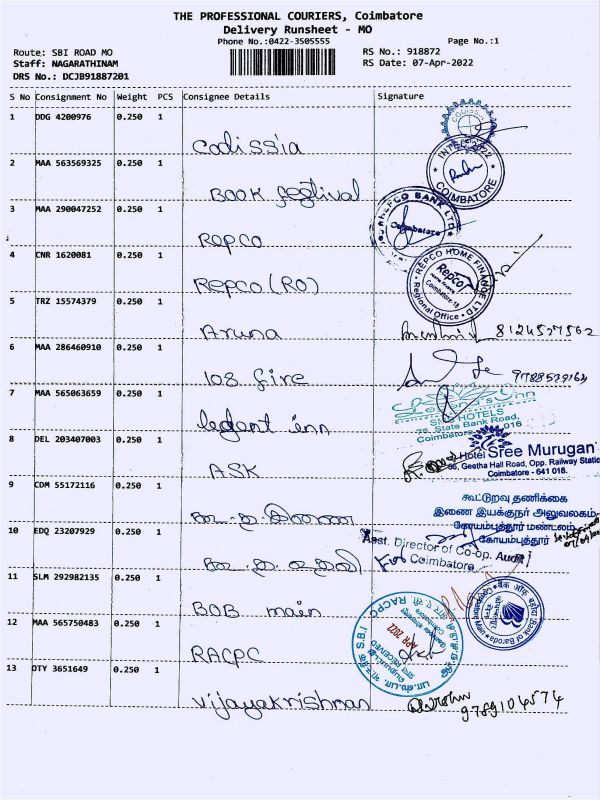 THE PROFESSIONAL COURIERS, Coimbatore
Delivery Runsheet - MO
Phone No.:0422-3505555
Page No.:1
Route: SBI ROAD MO
RS No.: 918872
Staff: NAGARATHINAM
RS Date: 07-Apr-2022
DRS No.: DCJB91887201
S No Consignment No Weight PCS Consignee Details Signature
1 DDG 4200976 0.250 1
Codissia
2 MAA 563569325 0.250 1
INTEC 2022
COIMBATORE
Book festival
3 MAA 290047252 0.250 1
REPCO BANK LTD
Coimbatore
Repco
4 CNR 1620081 0.250 1
REPCO HOME FINANCE LTD.
Repco
Coimbatore-18
Regional Office
Repco (RO)
5 TRZ 15574379 0.250 1
Aruna
8124527562
6 MAA 286460910 0.250 1
108 fire
7 MAA 565063659 0.250 1
HOTELS
State Bank Road,
Coimbatore
legent inn
8 DEL 203407003 0.250 1
Hotel Sree Murugan
86, Geetha Hall Road, Opp. Railway Statio
Coimbatore - 641 018.
ASK
9 CDM 55172116 0.250 1
கூட்டுறவு தணிக்கை
இணை இயக்குநர் அலுவலகம்
கோயம்புத்தூர் மண்டலம்
கோயம்புத்தூர்
10 EDQ 23207929 0.250 1
Asst. Director of Co-op. Audit
Coimbatore
11 SLM 292982135 0.250 1
Bank of Baroda
BOB main
12 MAA 565750483 0.250 1
S.B.I. RACPC
APR 2022
RECEIVED
RACPC
13 OTY 3651649 0.250 1
Vijayakrishnan
9789104574